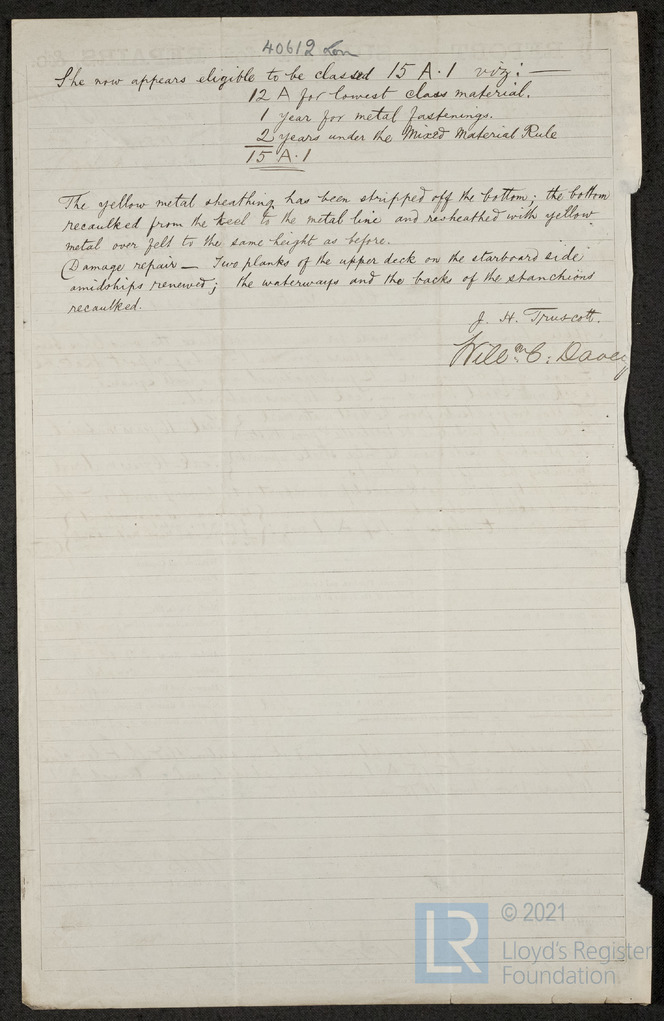 40612 Lon
She now appears eligible to be classed 15 A.1 viz: —
12 A for lowest class material.
1 year for metal fastenings.
2 years under the Mixed Material Rule
15 A.1
The yellow metal sheathing has been stripped off the bottom; the bottom
recaulked from the keel to the metal line and resheathed with yellow
metal over felt to the same height as before.
Damage repair — Two planks of the upper deck on the starboard side
amidships renewed; the waterways and the backs of the stanchions
recaulked.
J. H. Truscott.
Willm C. Davey
LR
© 2021
Lloyd's Register
Foundation